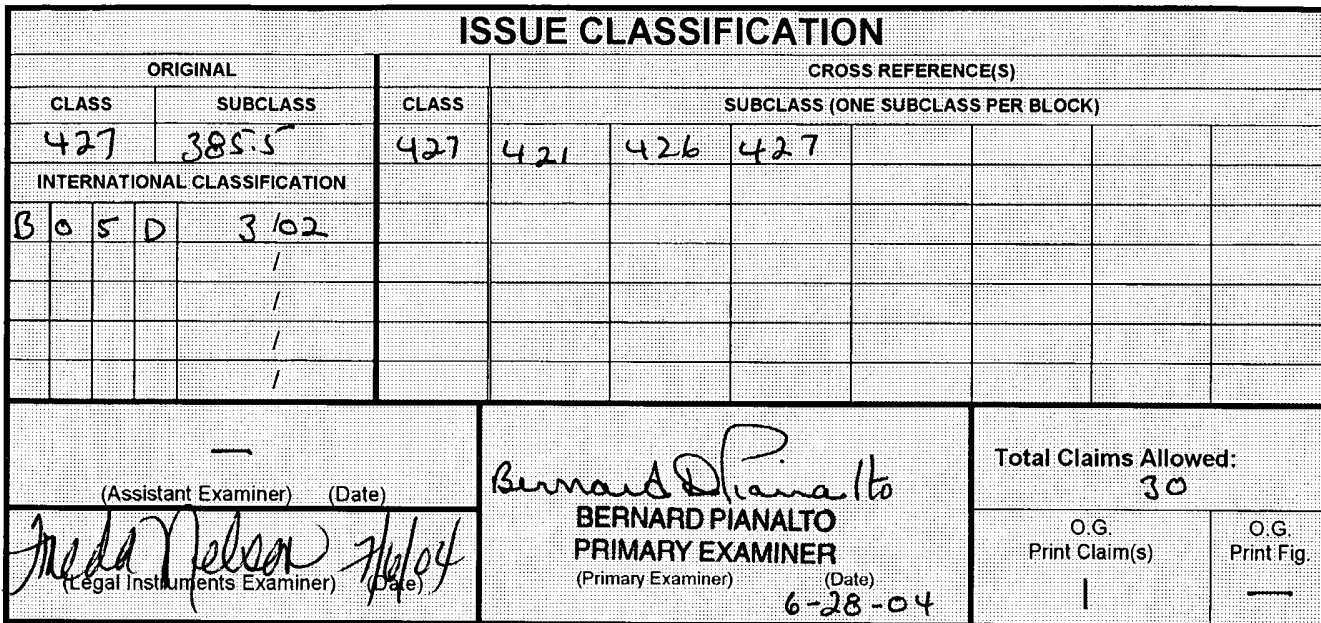 ISSUE CLASSIFICATION
ORIGINAL CROSS REFERENCE(S)
CLASS SUBCLASS CLASS SUBCLASS (ONE SUBCLASS PER BLOCK)
427 385.5 427 421 426 427
INTERNATIONAL CLASSIFICATION
B 0 5 D 3/02
/
/
/
/
—
(Assistant Examiner) (Date)
Freda Nelson 7/6/04
(Legal Instruments Examiner) (Date)
Bernard Pianalto
BERNARD PIANALTO
PRIMARY EXAMINER
(Primary Examiner) (Date)
6-28-04
Total Claims Allowed:
30
O.G.
Print Claim(s)
1
O.G.
Print Fig.
—